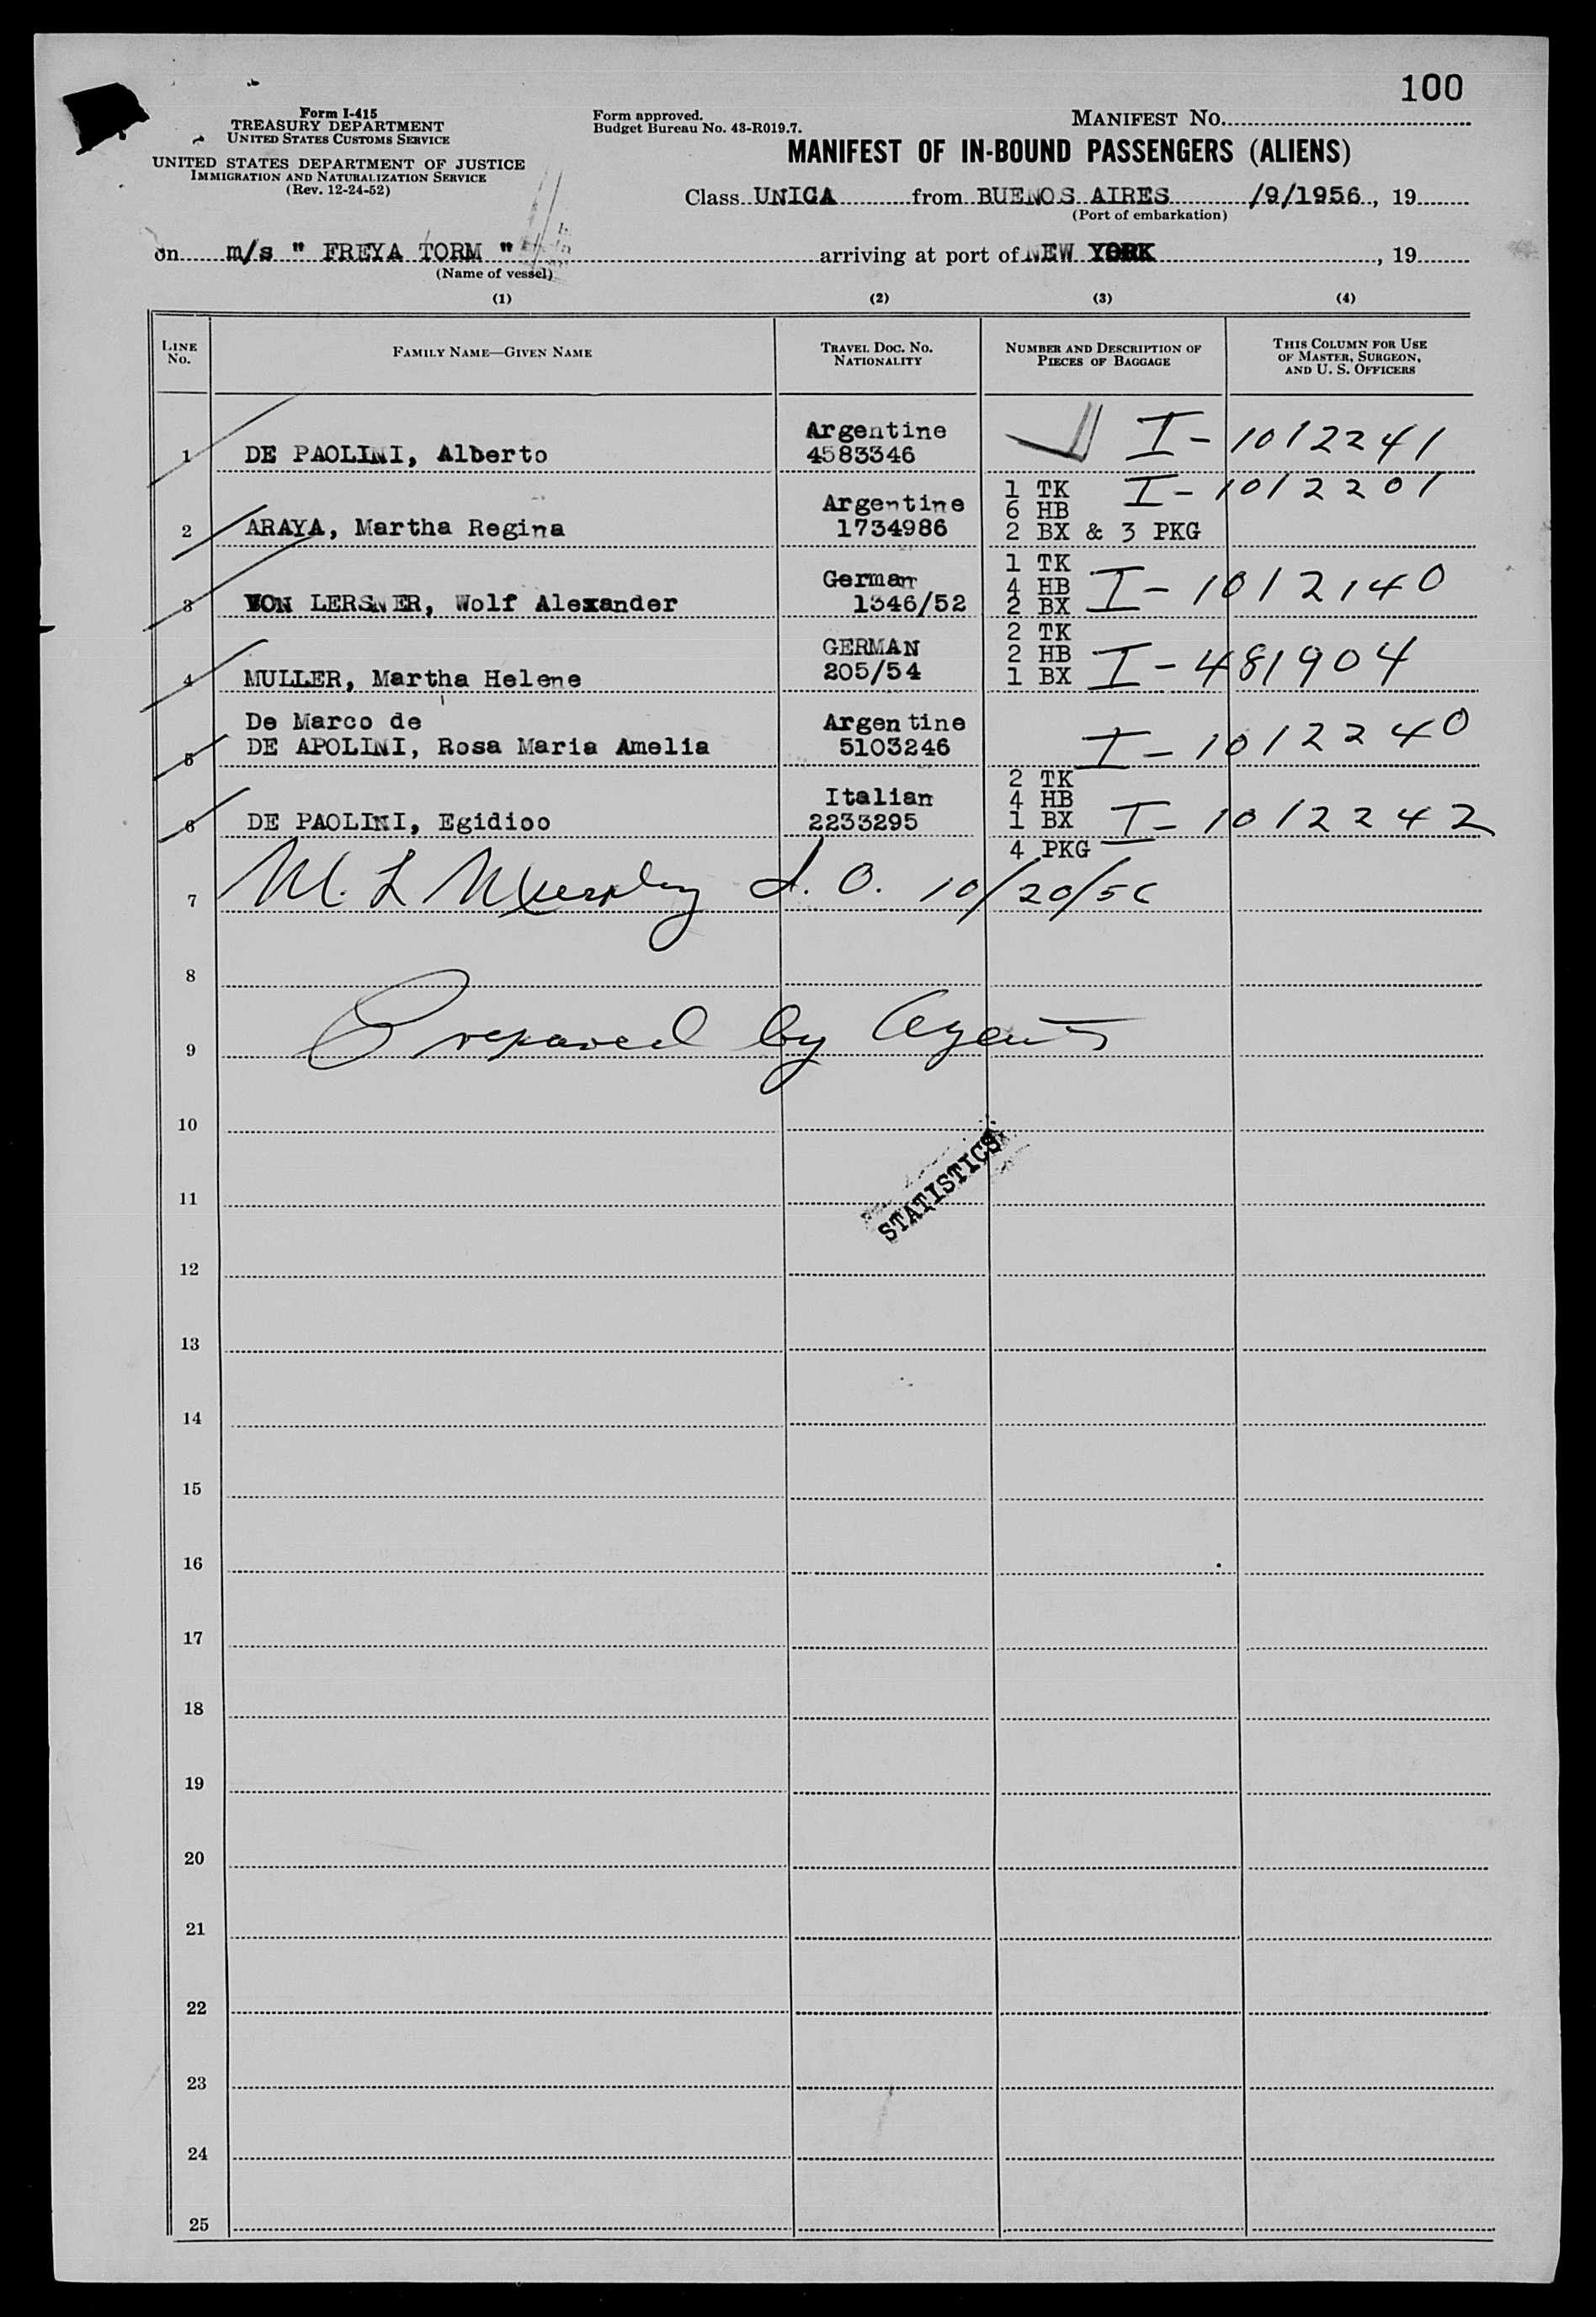 100
Form I-415
TREASURY DEPARTMENT
UNITED STATES CUSTOMS SERVICE
UNITED STATES DEPARTMENT OF JUSTICE
IMMIGRATION AND NATURALIZATION SERVICE
(Rev. 12-24-52)
Form approved.
Budget Bureau No. 43-R019.7.
MANIFEST NO.
MANIFEST OF IN-BOUND PASSENGERS (ALIENS)
Class UNICA from BUENOS AIRES /9/1956, 19
(Port of embarkation)
on m/s " FREYA TORM " arriving at port of NEW YORK, 19
(Name of vessel)
(1) (2) (3) (4)
LINE No. FAMILY NAME—GIVEN NAME TRAVEL DOC. NO. NATIONALITY NUMBER AND DESCRIPTION OF PIECES OF BAGGAGE THIS COLUMN FOR USE OF MASTER, SURGEON, AND U. S. OFFICERS
Argentine
1 DE PAOLINI, Alberto 4583346 I-1012241
1 TK I-1012201
Argentine 6 HB
2 ARAYA, Martha Regina 1734986 2 BX & 3 PKG
1 TK
German 4 HB I-1012140
3 VON LERSNER, Wolf Alexander 1346/52 2 BX
2 TK
GERMAN 2 HB I-481904
4 MULLER, Martha Helene 205/54 1 BX
De Marco de Argentine
5 DE APOLINI, Rosa Maria Amelia 5103246 I-1012240
2 TK
Italian 4 HB
6 DE PAOLINI, Egidioo 2233295 1 BX I-1012242
4 PKG
7 M. L Murphy I. O. 10/20/56
8
9 Prepared by Agents
10
STATISTICS
11
12
13
14
15
16
17
18
19
20
21
22
23
24
25